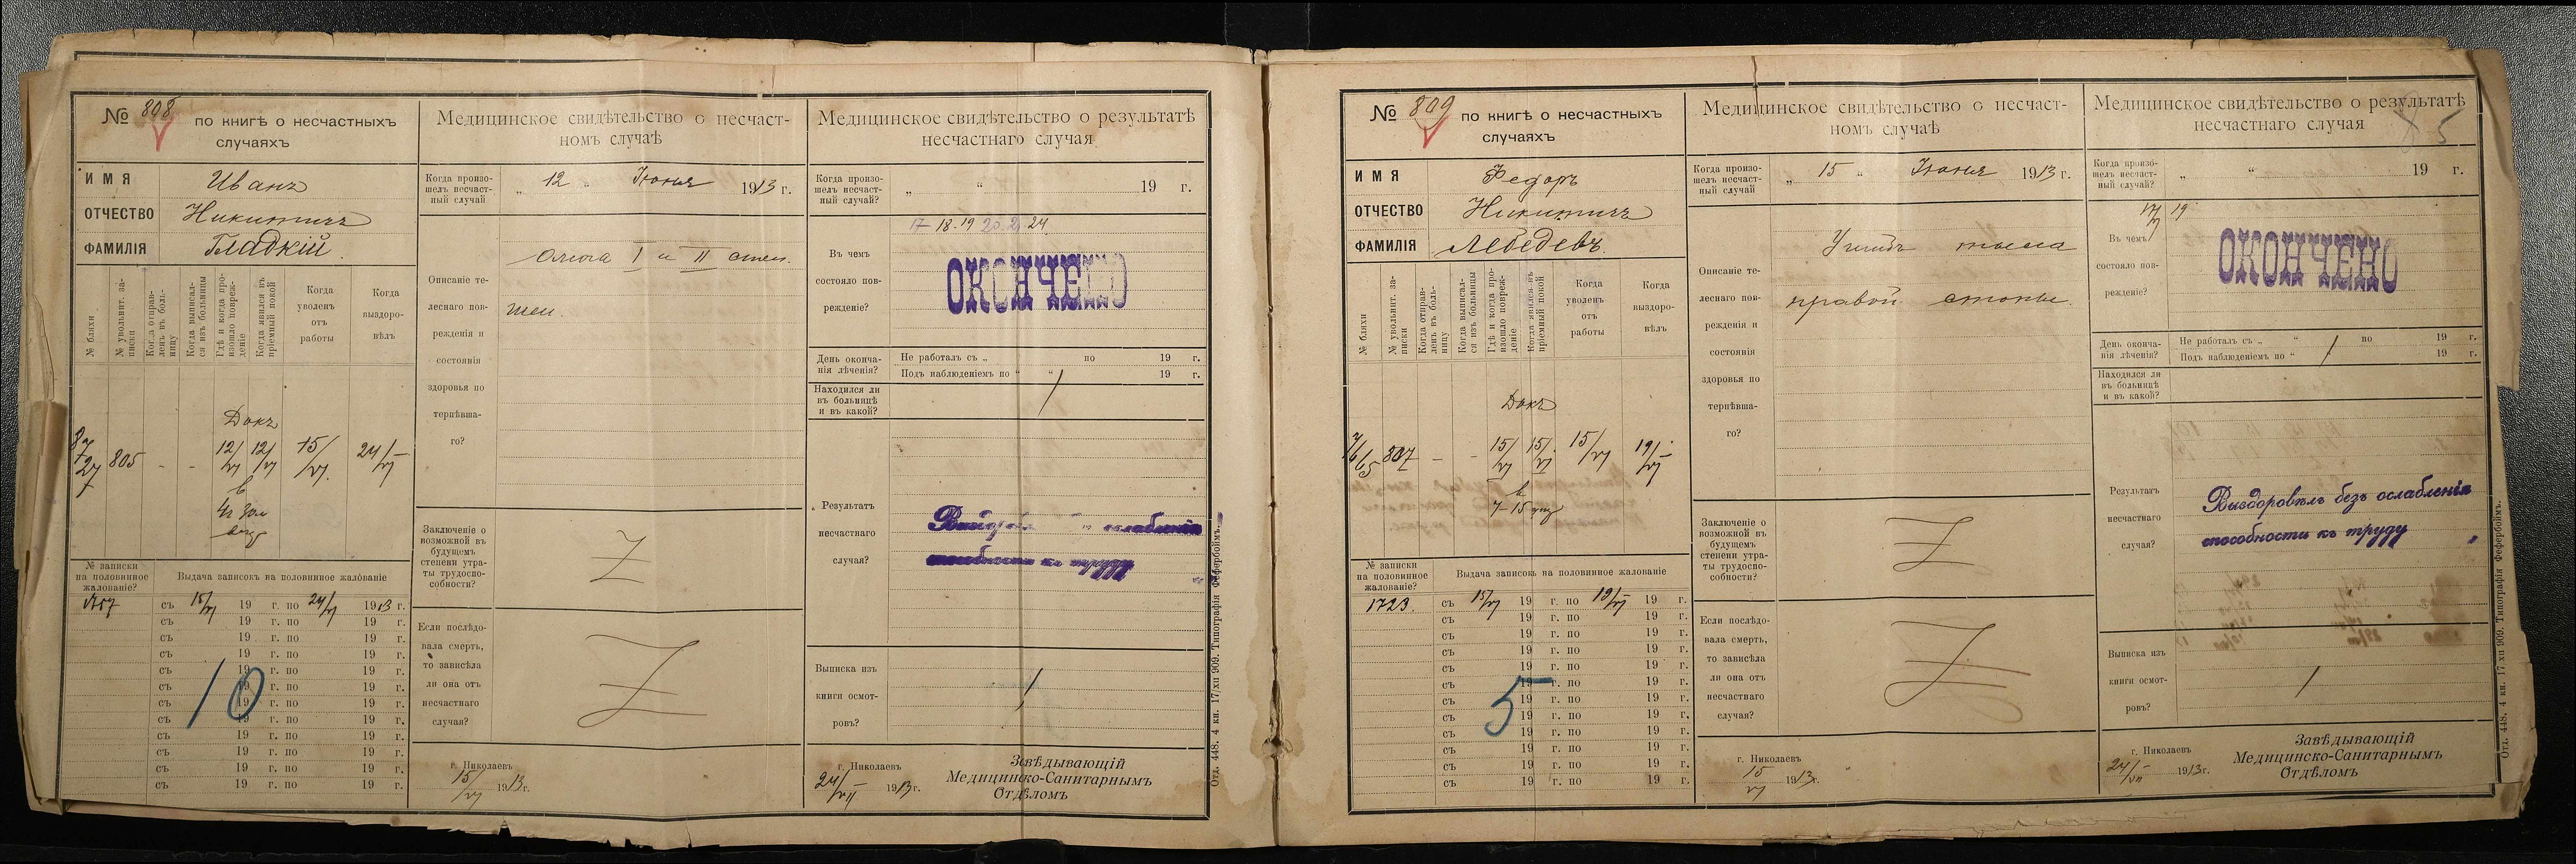 № 808 по книгѣ о несчастныхъ
случаяхъ
ИМЯ Иванъ
ОТЧЕСТВО Никитичъ
ФАМИЛІЯ Гладкій.
№ бляхи
№ увольнит. за-
писки
Когда отправ-
ленъ въ боль-
ницу
Когда выписал-
ся изъ больницы
Гдѣ и когда про-
изошло повреж-
деніе
Когда явился въ
пріемный покой
Когда
уволенъ
отъ
работы
Когда
выздоро-
вѣлъ
Докъ
805 - - 12/VI 12/VI 15/VI. 24/VI
№ записки
на половинное
жалованіе?
Выдача записокъ на половинное жалованіе
съ 15/VI 19 г. по 24/VI 1913 г.
съ 19 г. по 19 г.
съ 19 г. по 19 г.
съ 19 г. по 19 г.
съ 19 г. по 19 г.
съ 19 г. по 19 г.
съ 19 г. по 19 г.
съ 19 г. по 19 г.
съ 19 г. по 19 г.
съ 19 г. по 19 г.
съ 19 г. по 19 г.
съ 19 г. по 19 г.
10
Медицинское свидѣтельство о несчаст-
номъ случаѣ
Когда произо-
шелъ несчаст-
ный случай
„ 12 „ Іюня 1913 г.
Описаніе те-
леснаго пов-
режденія и
состоянія
здоровья по
терпѣвша-
го?
Ожога I и II степ.
шеи.
Заключеніе о
возможной въ
будущемъ
степени утра-
ты трудоспо-
собности?
Если послѣдо-
вала смерть,
то зависѣла
ли она отъ
несчастнаго
случая?
г. Николаевъ
15/VI 1913г.
Медицинское свидѣтельство о результатѣ
несчастнаго случая
Когда произо-
шелъ несчаст-
ный случай?
„ “ 19 г.
17 18. 19 20. 21 24
Въ чемъ
состояло пов-
режденіе?
ОКОНЧЕНО
День оконча-
нія лѣченія?
Не работалъ съ „ по 19 г.
Подъ наблюденіемъ по “ “ 19 г.
Находился ли
въ больницѣ
и въ какой?
Результатъ
несчастнаго
случая?
ослабленія
способности къ труду
Выписка изъ
книги осмот-
ровъ?
г. Николаевъ
24/VII 1913г.
Завѣдывающій
Медицинско-Санитарнымъ
Отдѣломъ
Отд. 448. 4 кн. 17/хп 909. Типографія Фефербоймъ.
№ 809 по книгѣ о несчастныхъ
случаяхъ
ИМЯ Федоръ
ОТЧЕСТВО Никитичъ
ФАМИЛІЯ Лебедевъ.
№ бляхи
№ увольнит. за-
писки
Когда отправ-
ленъ въ боль-
ницу
Когда выписал-
ся изъ больницы
Гдѣ и когда про-
изошло повреж-
деніе
Когда явился въ
пріемный покой
Когда
уволенъ
отъ
работы
Когда
выздоро-
вѣлъ
Докъ
807 - - 15/VI 15/VI. 15/VI 19/VI
в
7-15 утр
№ записки
на половинное
жалованіе?
Выдача записокъ на половинное жалованіе
1723. съ 15/VI 19 г. по 19/VI 19 г.
съ 19 г. по 19 г.
съ 19 г. по 19 г.
съ 19 г. по 19 г.
съ 19 г. по 19 г.
съ 19 г. по 19 г.
съ 19 г. по 19 г.
съ 19 г. по 19 г.
съ 19 г. по 19 г.
съ 19 г. по 19 г.
съ 19 г. по 19 г.
съ 19 г. по 19 г.
5
Медицинское свидѣтельство о несчаст-
номъ случаѣ
Когда произо-
шелъ несчаст-
ный случай
„ 15 „ Іюня 1913 г.
Описаніе те-
леснаго пов-
режденія и
состоянія
здоровья по
терпѣвша-
го?
Ушибъ тыла
правой стопы.
Заключеніе о
возможной въ
будущемъ
степени утра-
ты трудоспо-
собности?
Если послѣдо-
вала смерть,
то зависѣла
ли она отъ
несчастнаго
случая?
г. Николаевъ
15/VI 1913г.
Медицинское свидѣтельство о результатѣ
несчастнаго случая
5
Когда произо-
шелъ несчаст-
ный случай?
„ “ 19 г.
17/VI 19
Въ чемъ
состояло пов-
режденіе?
ОКОНЧЕНО
День оконча-
нія лѣченія?
Не работалъ съ „ “ по 19 г.
Подъ наблюденіемъ по “ 19 г.
Находился ли
въ больницѣ
и въ какой?
Результатъ
несчастнаго
случая?
Выздоровѣлъ безъ ослабленія
способности къ труду
Выписка изъ
книги осмот-
ровъ?
г. Николаевъ
24/VII 1913г.
Завѣдывающій
Медицинско-Санитарнымъ
Отдѣломъ
Отд. 448. 4 кн. 17 хп 909. Типографія Фефербоймъ.